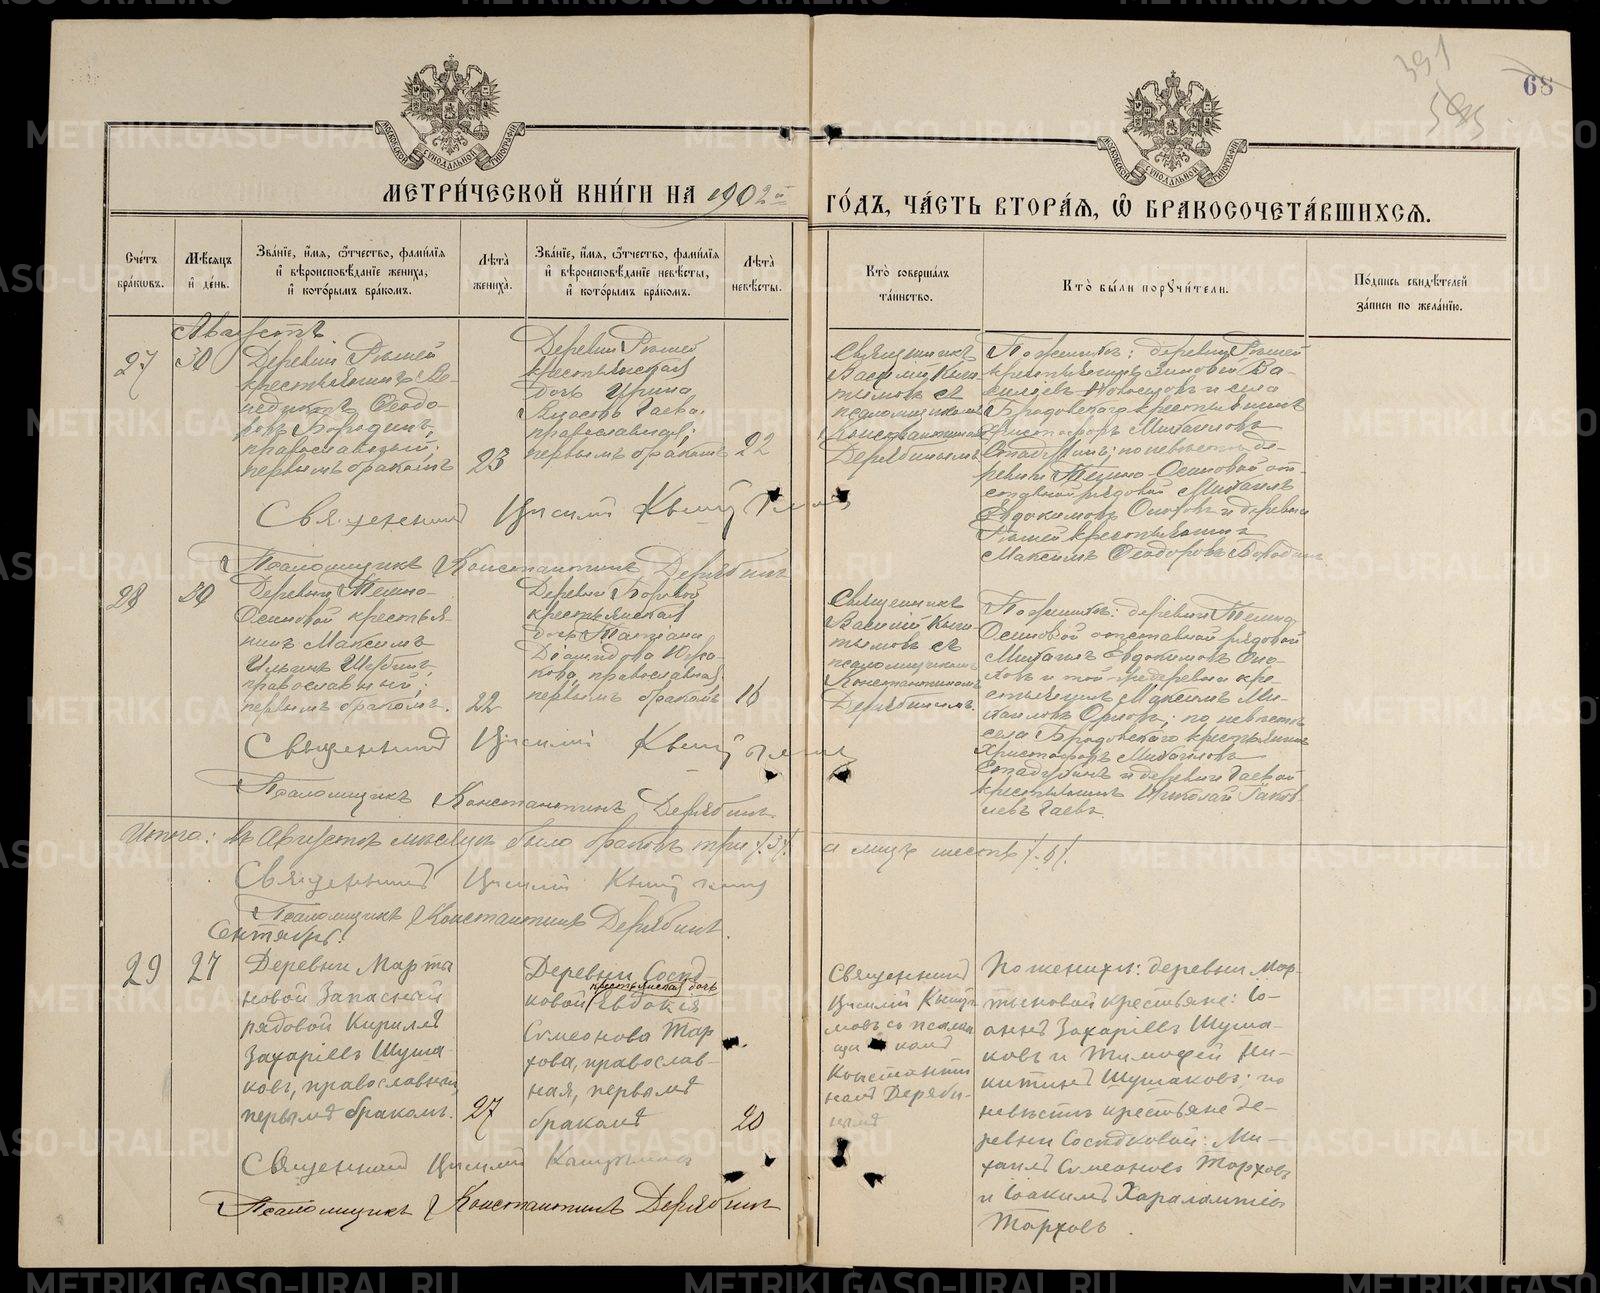 391
585
68
МОСКОВСКОЙ СУНОДАЛЬНОЙ ТИПОГРАФІИ
МОСКОВСКОЙ СУНОДАЛЬНОЙ ТИПОГРАФІИ
МЕТРИ́ЧЕСКОЙ КНИ́ГИ НА 1902 й
ГО́ДЪ, ЧА́СТЬ ВТОРА́Я, Ѽ БРАКОСОЧЕТА́ВШИХСЯ.
Сче́тъ бра́ковъ.
Мѣ́сяцъ и҆ де́нь.
Зва́нїе, и҆́мя, ѻ҆́тчество, фами́лїя и҆ вѣроисповѣ́данїе жениха̀, и҆ кото́рымъ бра́комъ.
Лѣта̀ жениха̀.
Зва́нїе, и҆́мя, ѻ҆́тчество, фами́лїя и҆ вѣроисповѣ́данїе невѣ́сты, и҆ кото́рымъ бра́комъ.
Лѣта̀ невѣ́сты.
Кто̀ соверша́лъ та́инство.
Кто̀ бы́ли порꙋчи́тели.
По́дпись свидѣ́телей за́писи по жела́нїю.
Августъ.
27
30
Деревни
крестьянинъ
Ѳеодо-
ровъ Бородинъ,
православный;
первымъ бракомъ
23
Деревни
крестьянская
дочь Ирина
Власова Гаева,
православная;
первымъ бракомъ
22
Священникъ
Василій Кыш-
тымовъ съ
псаломщикомъ
Константиномъ
Дерябинымъ
По женихѣ: деревни
крестьянинъ Зиновій Ва-
сильевъ и села
Бродовскаго крестьянинъ
Христофоръ Михайловъ
по невѣстѣ де-
ревни Темно-Осиновой от-
ставной рядовой Михаилъ
Евдокимовъ и деревни
крестьянинъ
Максимъ Ѳеодоровъ Бородинъ
Священникъ Василій Кыштымовъ
Псаломщикъ Константинъ Дерябинъ
28
30
Деревни Темно-
Осиновой крестья-
нинъ Максимъ
Ильинъ
православный;
первымъ бракомъ.
22
Деревни Боровой
крестьянская
дочь Татіана
Діомидова
православная
первымъ бракомъ
16
Священникъ
Василій Кыш-
тымовъ съ
псаломщикомъ
Константиномъ
Дерябинымъ.
По женихѣ: деревни Темно-
Осиновой отставной рядовой
Михаилъ Евдокимовъ
и той же деревни кре-
стьянинъ Максимъ Ми-
хайловъ Орловъ; по невѣстѣ
села Бродовскаго крестьянинъ
Христофоръ Михайловъ
и деревни Гаевой
крестьянинъ Николай Яков-
левъ Гаевъ.
Священникъ Василій Кыштымовъ
Псаломщикъ Константинъ Дерябинъ.
Итого: въ Августѣ мѣсяцѣ было браковъ три /.3/.
а лицъ шесть /.6/.
Священникъ Василій Кыштымовъ
Псаломщикъ Константинъ Дерябинъ.
Сентябрь.
29
27
Деревни Марты-
новой Запасный
рядовой Кириллъ
Захаріевъ Шума-
ковъ, православный,
первымъ бракомъ.
27
Деревни Сосѣд-
крестьянская дочь
ковой Евдокія
Симеонова Тар-
хова, православ-
ная, первымъ
бракомъ
20
Священникъ
Василій Кышты-
мовъ съ псалом-
щикомъ
Константи-
номъ Деряби-
нымъ
По женихѣ: деревни Мар-
тыновой крестьяне: Іо-
аннъ Захаріевъ Шума-
ковъ и Тимофей Ни-
китинъ Шумаковъ; по
невѣстѣ крестьяне де-
ревни Сосѣдковой: Ми-
хаилъ Симеоновъ Тарховъ
и Іоакимъ Харалампіевъ
Тарховъ.
Священникъ Василій Кыштымовъ
Псаломщикъ Константинъ Дерябинъ
METRIKI.GASO-URAL.RU